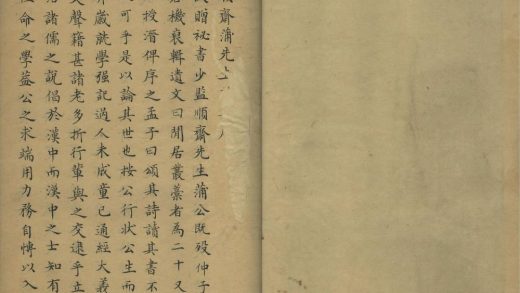 順齋蒲先生
贈祕書少監順齋先生蒲公既殁仲子
機裒輯遺文曰閒居叢藁者為二十又
授潛俾序之孟子曰頌其詩讀其書不
可乎是以論其世也按公行狀公生而
歲就學强記過人未成童已通經大義
聲籍甚諸老多折行輩與之交逮乎立
諸儒之說倡於漢中而漢中之士知有
命之學蓋公之求端用力務自博以入